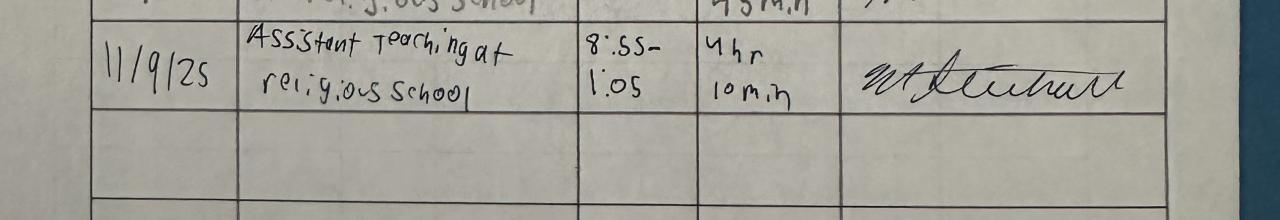 religious school
45 min
11/9/25
Assistant Teaching at
religious school
8:55-
1:05
4hr
10 min